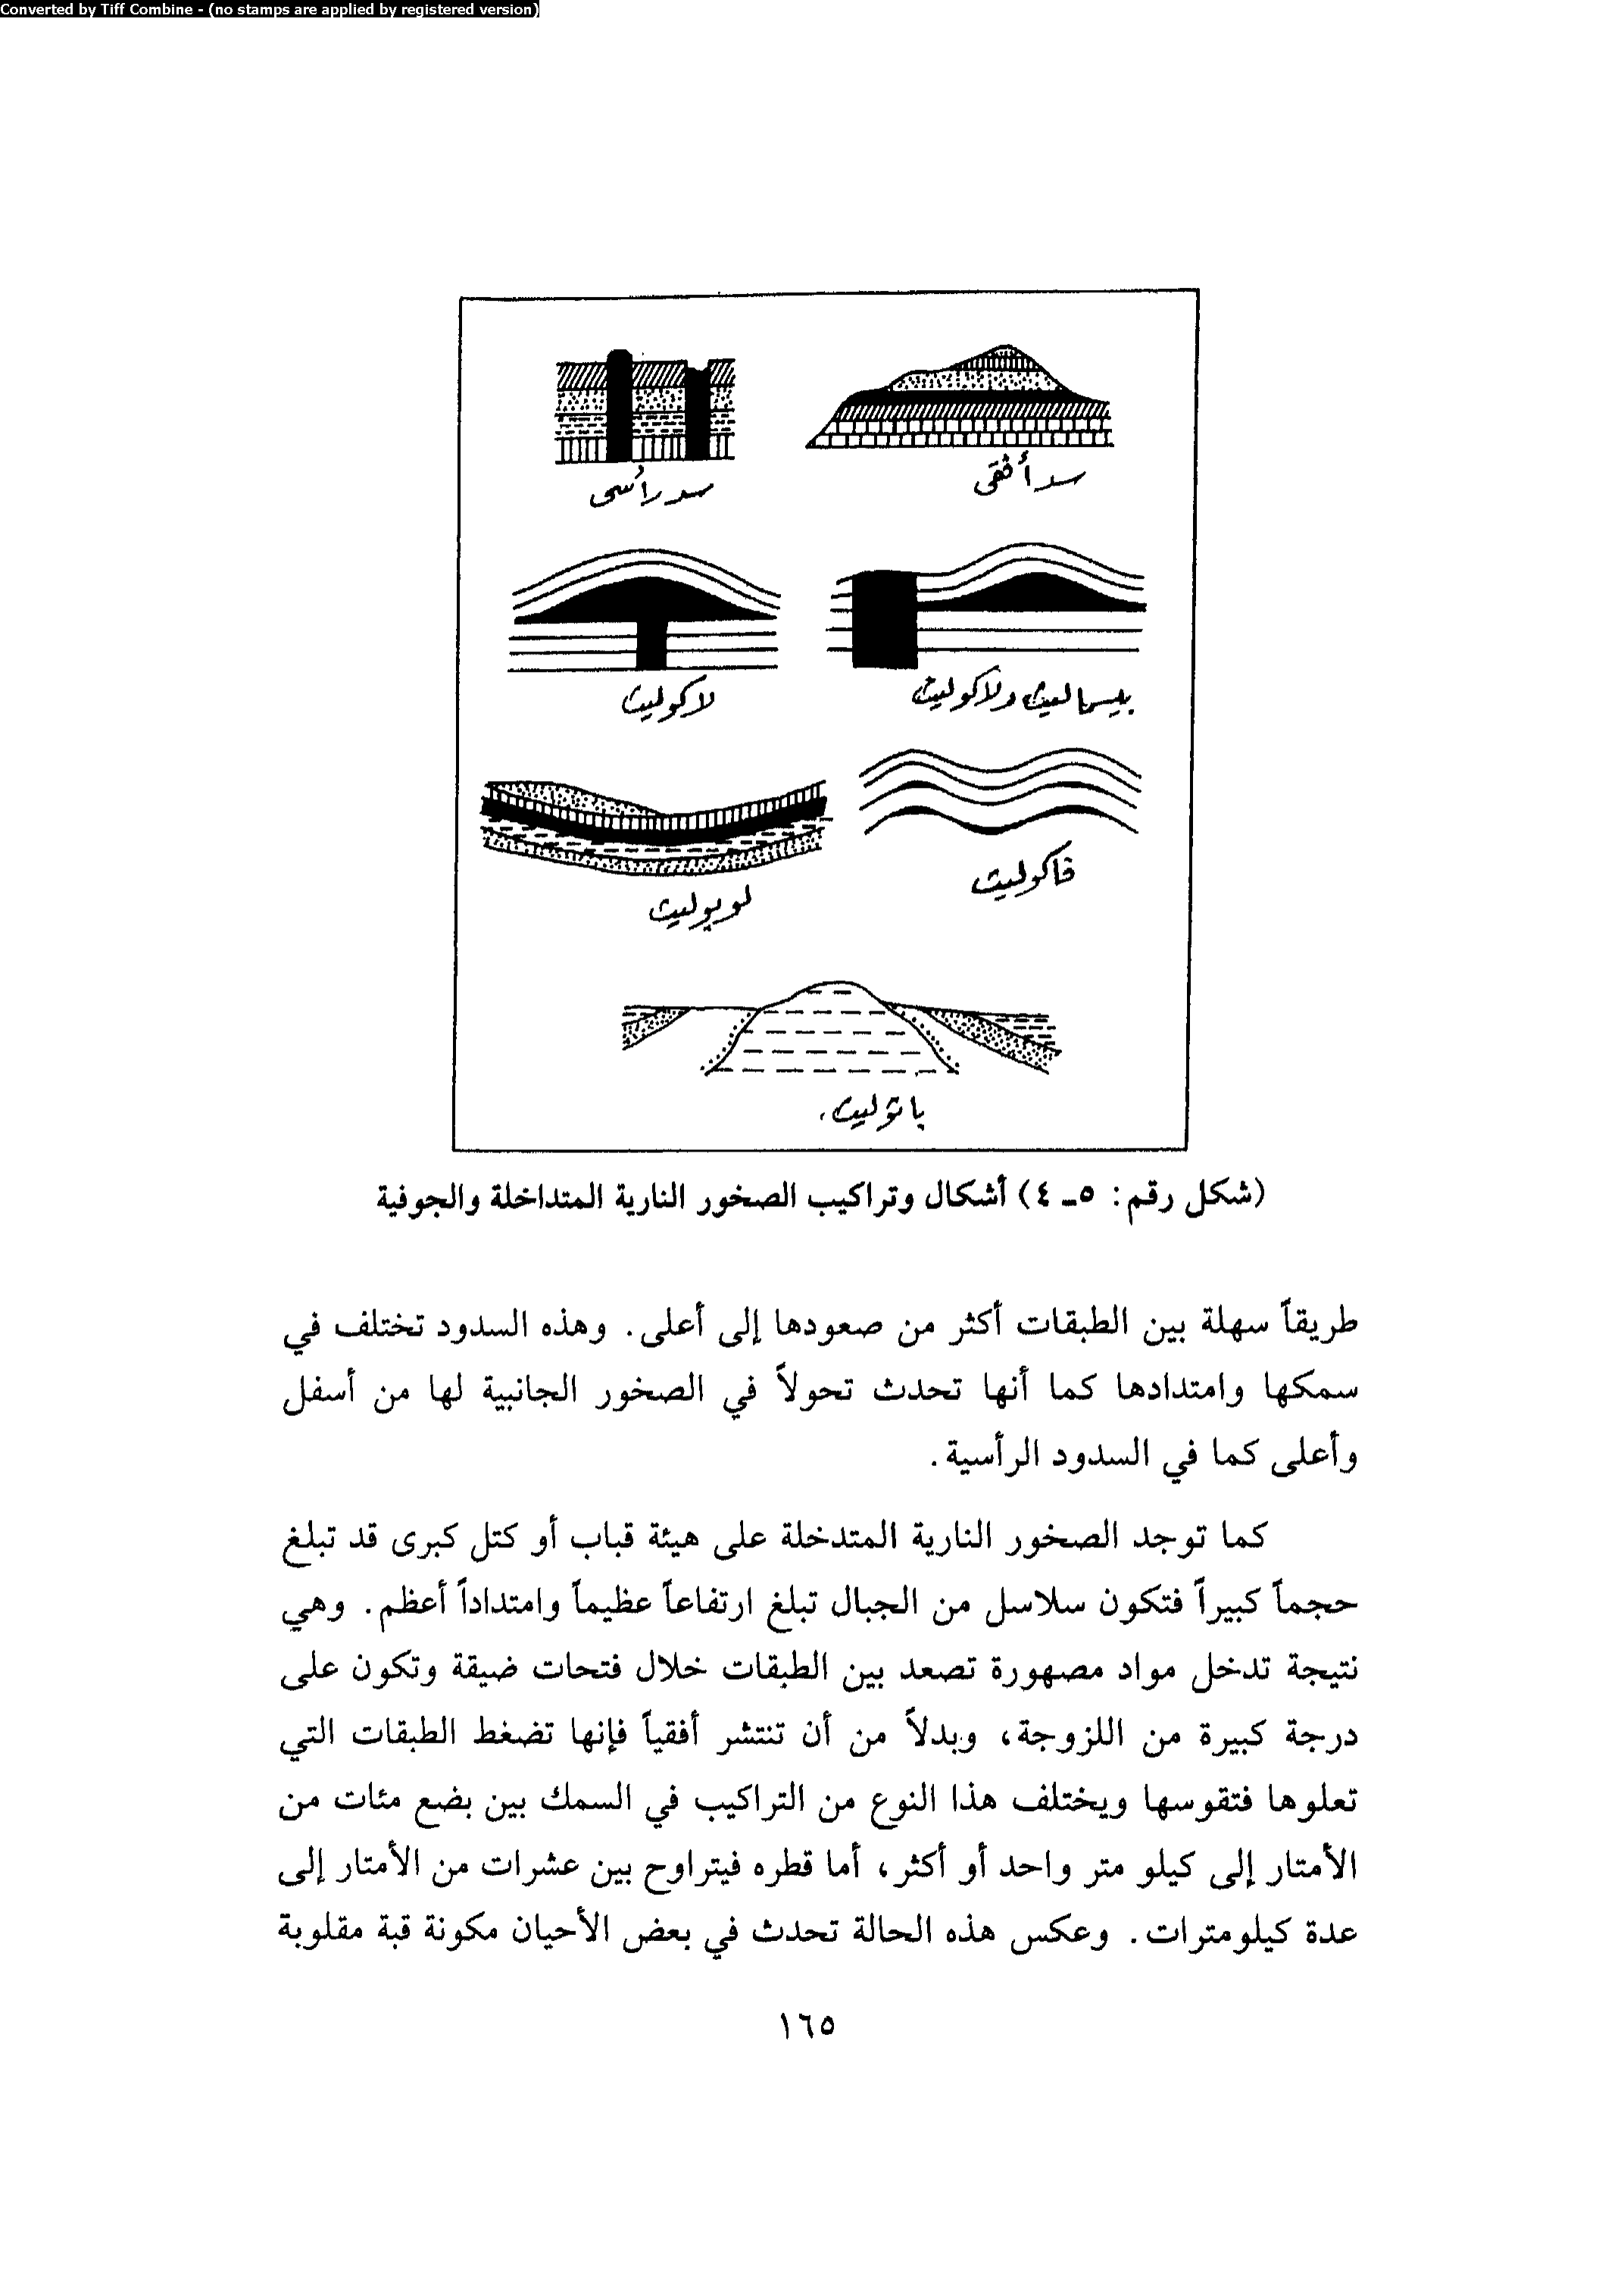 Converted by Tiff Combine - (no stamps are applied by registered version)
سد أفقى
سد رأسى
بيسماليث ولاكوليث
لاكوليث
فاكوليث
لوبوليث
باثوليث.
(شكل رقم: ٥ـ ٤) أشكال وتراكيب الصخور النارية المتداخلة والجوفية
طريقاً سهلة بين الطبقات أكثر من صعودها إلى أعلى. وهذه السدود تختلف في
سمكها وامتدادها كما أنها تحدث تحولاً في الصخور الجانبية لها من أسفل
وأعلى كما في السدود الرأسية.
كما توجد الصخور النارية المتدخلة على هيئة قباب أو كتل كبرى قد تبلغ
حجماً كبيراً فتكون سلاسل من الجبال تبلغ ارتفاعاً عظيماً وامتداداً أعظم. وهي
نتيجة تدخل مواد مصهورة تصعد بين الطبقات خلال فتحات ضيقة وتكون على
درجة كبيرة من اللزوجة، وبدلاً من أن تنتشر أفقياً فإنها تضغط الطبقات التي
تعلوها فتقوسها ويختلف هذا النوع من التراكيب في السمك بين بضع مئات من
الأمتار إلى كيلو متر واحد أو أكثر، أما قطره فيتراوح بين عشرات من الأمتار إلى
عدة كيلومترات. وعكس هذه الحالة تحدث في بعض الأحيان مكونة قبة مقلوبة
١٦٥